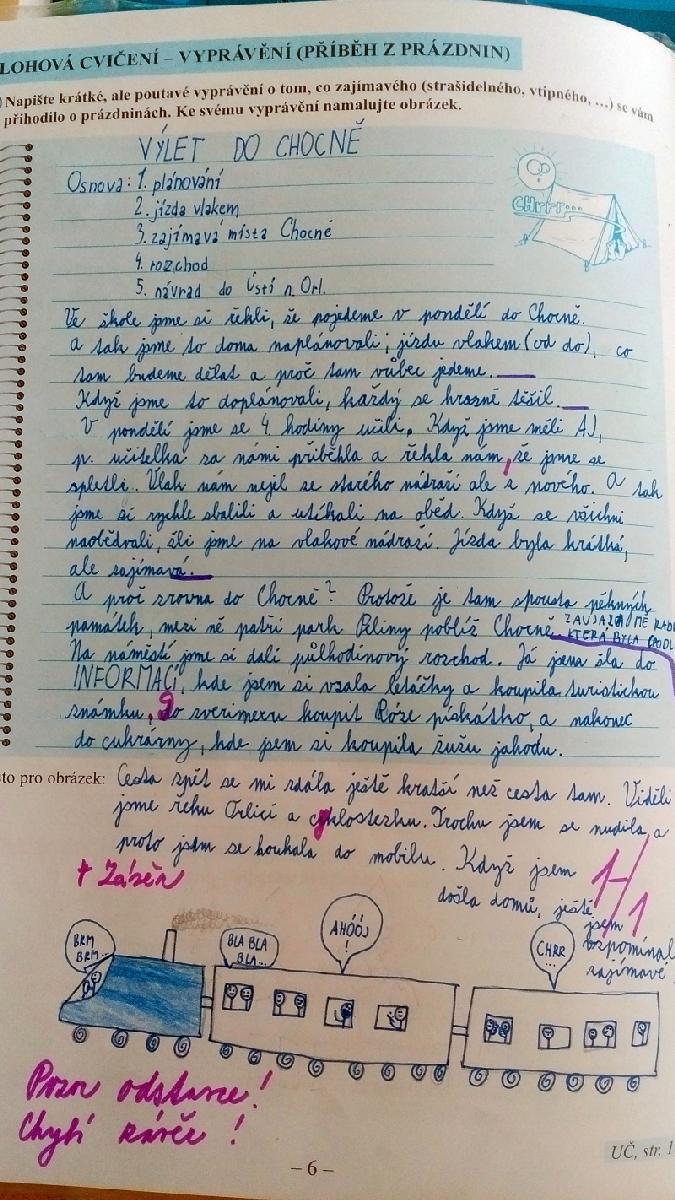 LOHOVÁ CVIČENÍ – VYPRÁVĚNÍ (PŘÍBĚH Z PRÁZDNIN)
Napište krátké, ale poutavé vyprávění o tom, co zajímavého (strašidelného, vtipného, ...) se vám
přihodilo o prázdninách. Ke svému vyprávění namalujte obrázek.
VÝLET DO CHOCNĚ
Osnova: 1. plánování
2. jízda vlakem
3. zajímavá místa Chocně
4. rozchod
5. návrad do Ústí n. Orl.
CHrr...
Ve škole jsme si řekli, že pojedeme v pondělí do Chocně.
a tak jsme to doma naplánovali; jízdu vlakem (od do), co
tam budeme dělat a proč tam vůbec jedeme.
Když jsme to doplánovali, každý se hrozně těšil.
V pondělí jsme se 4 hodiny učili. Když jsme měli AJ,
p. učitelka za námi přiběhla a řekla nám, že jsme se
spletli. Vlak nám nejel ze starého nádraží ale z nového. A tak
jsme si rychle sbalili a utíkali na oběd. Když se všichni
naobědvali, šli jsme na vlakové nádraží. Jízda byla krátká,
ale zajímavá.
A proč zrovna do Chocně? Protože je tam spousta pěkných
památek, mezi ně patří park Peliny poblíž Chocně.
KTERÁ BYLA
Na náměstí jsme si dali půlhodinový rozchod. Já jsem šla do
INFORMACÍ, kde jsem si vzala letáčky a koupila turistickou
známku, do zverimexu koupit Róze pískátko, a nakonec
do cukrárny, kde jsem si koupila žužu jahodu.
sto pro obrázek: Cesta zpět se mi zdála ještě kratší než cesta tam. Viděli
jsme řeku Orlici a cyklostezku. Trochu jsem se nudila, a
proto jsem se koukala do mobilu. Když jsem
došla domů, ještě
jsem
vzpomínal
zajímavé
1-/1
+ Závěr
BRM
BRM...
BLA BLA
BLA...
AHÓÓJ
!
CHRR
...
Pozor odstavce!
Chybí závěr!
UČ, str. 1
– 6 –